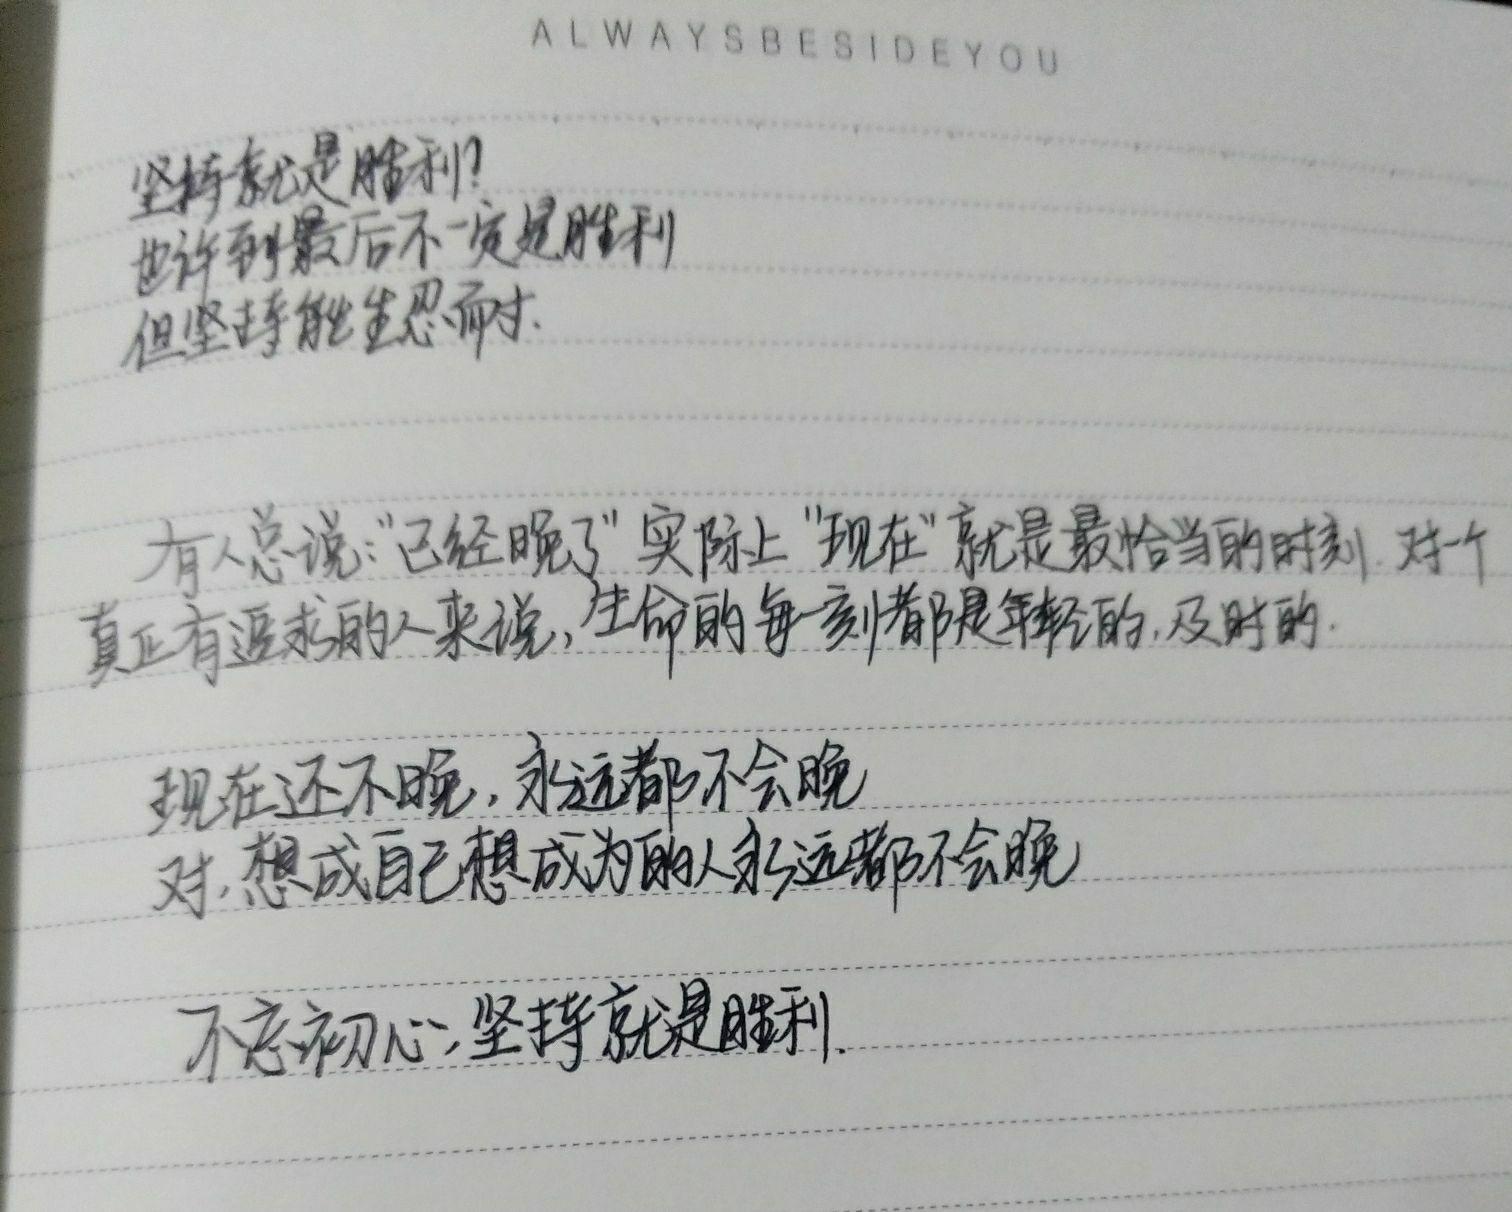 ALWAYSBESIDEYOU
坚持就是胜利?
也许到最后不一定是胜利
但坚持能生忍耐.
有人总说:"已经晚了"实际上"现在"就是最恰当的时刻.对一个
真正有追求的人来说,生命的每一刻都是年轻的,及时的.
现在还不晚,永远都不会晚
对,想成自己想成为的人永远都不会晚
不忘初心,坚持就是胜利.